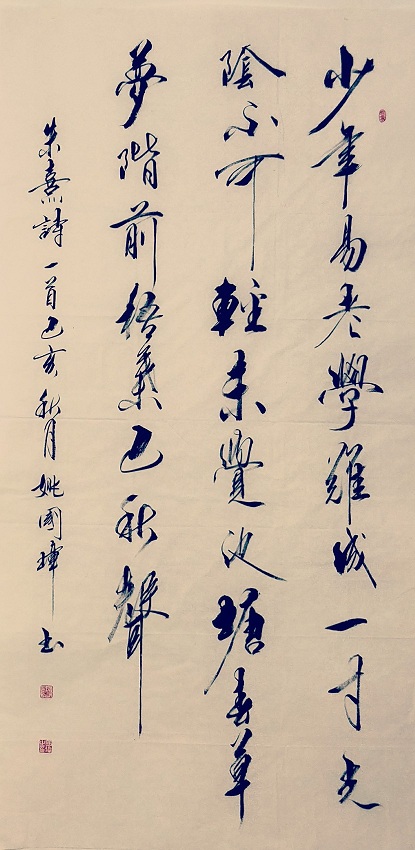 少年易老學難成一寸光
陰不可輕未覺池塘春草
夢階前梧葉已秋聲
朱熹詩一首己亥秋月姚國瑋书